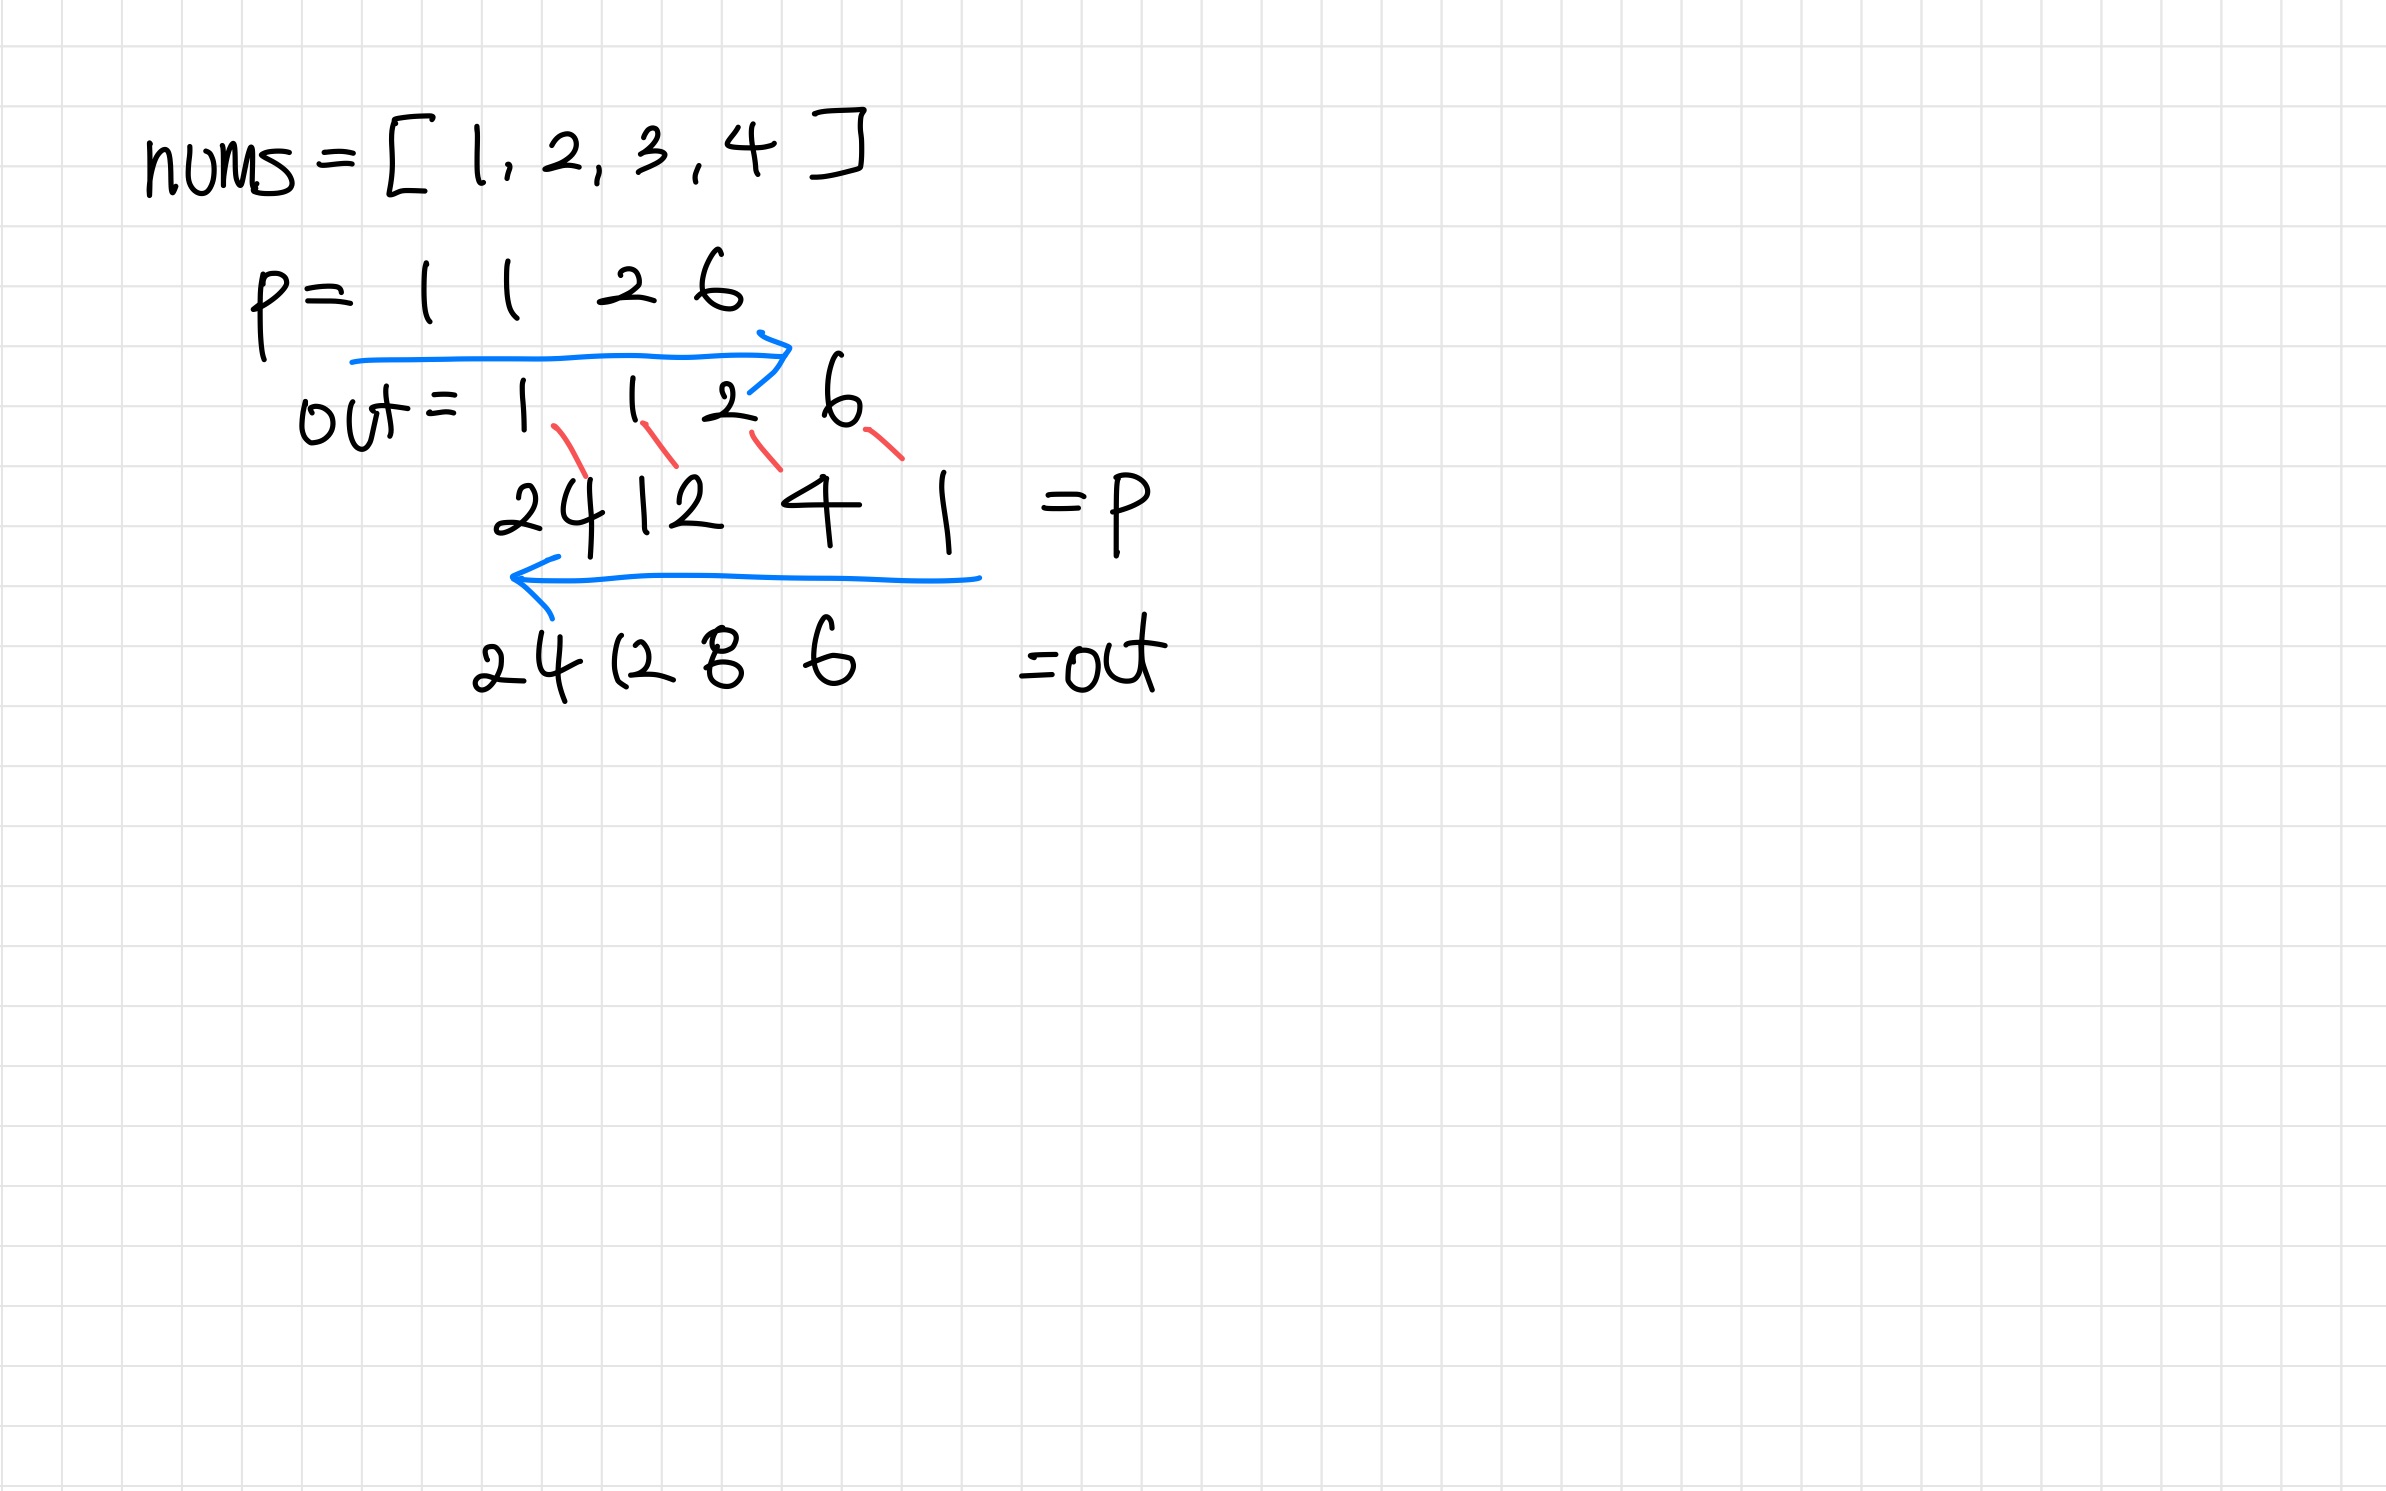 nums = [1, 2, 3, 4]
p = 1 1 2 6
out = 1 1 2 6
24 12 4 1 = p
24 12 8 6 = out